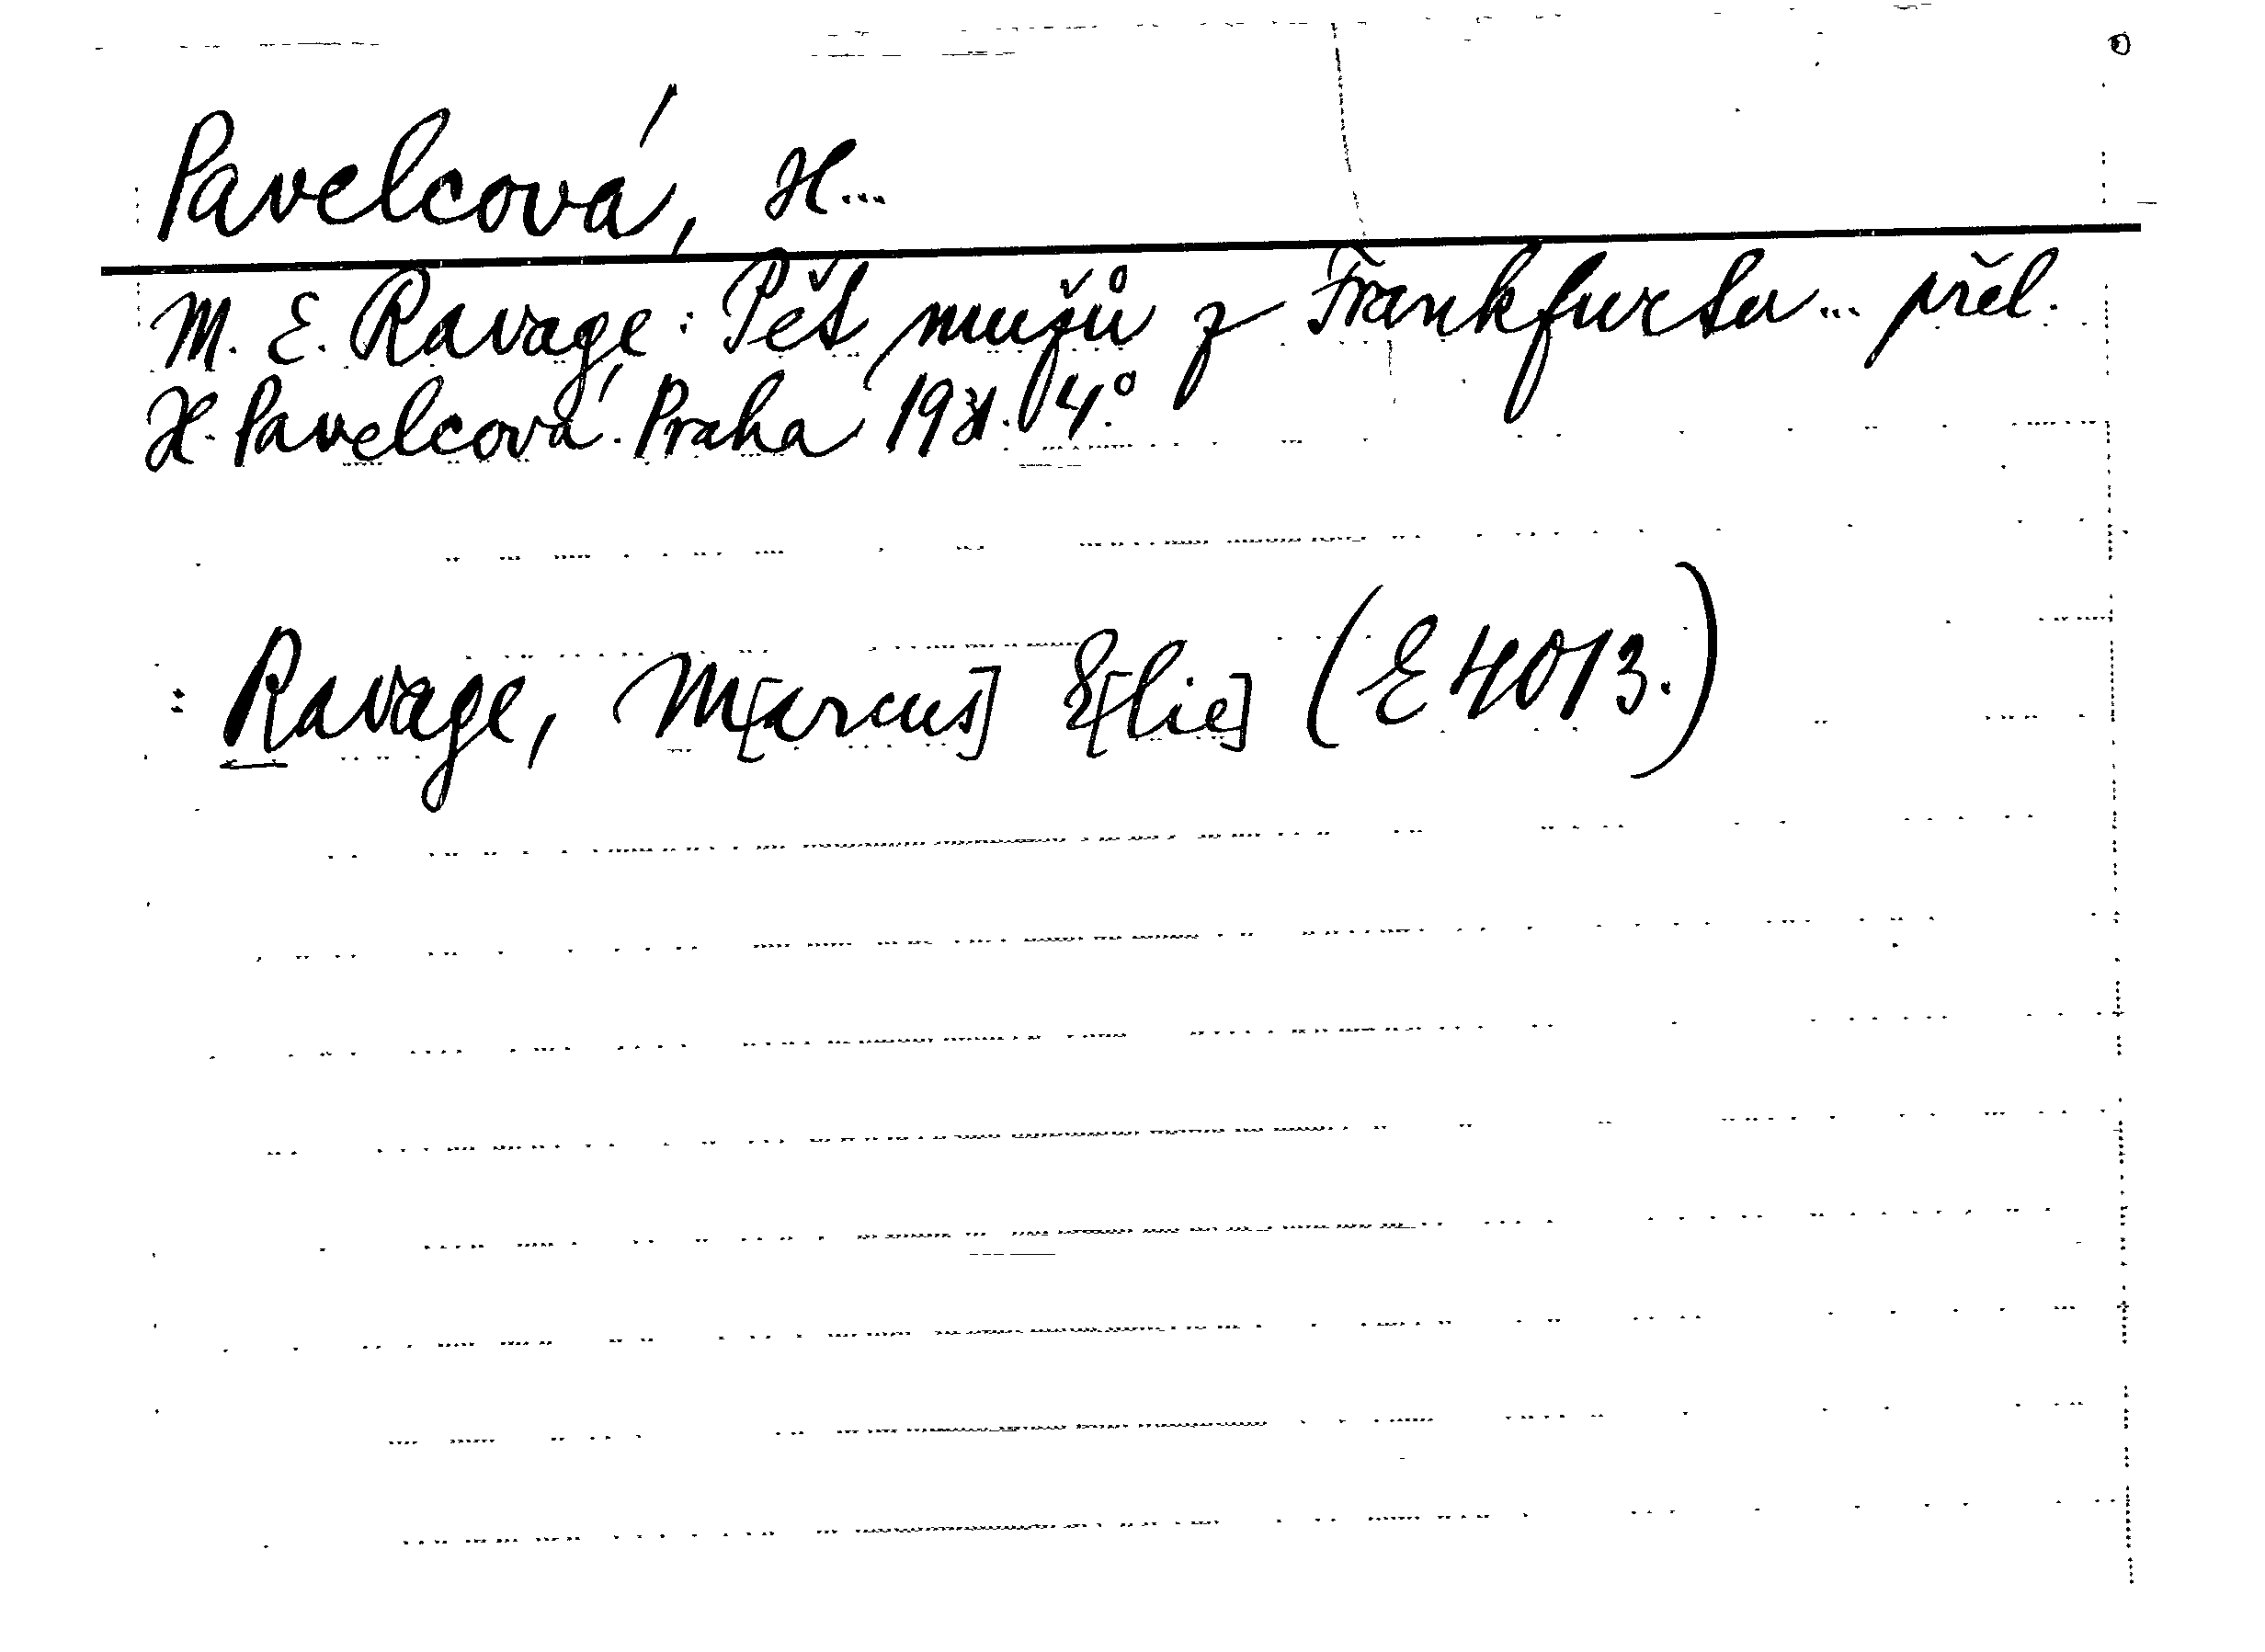 Pavelcová, H...
M. E. Ravage: Pět mužů z Frankfurtu... přel.
H. Pavelcová. Praha 1931. 4°.
: Ravage, M[arcus] E[lie] (E 4013.)